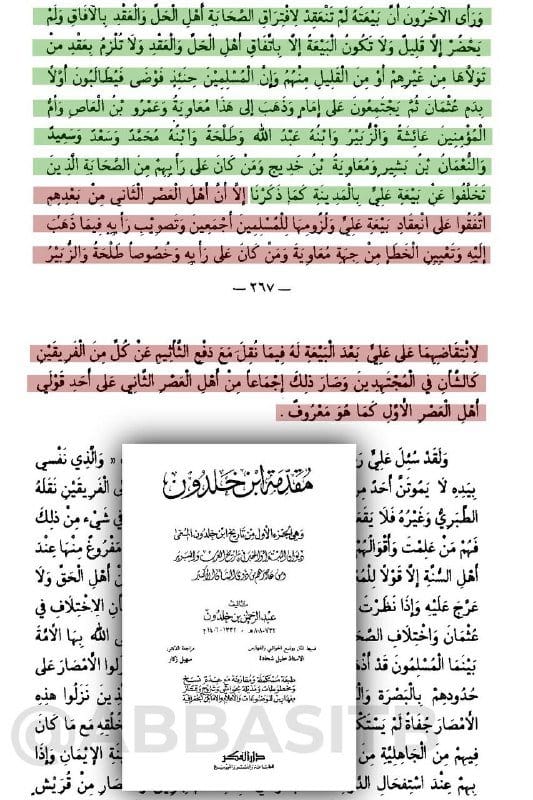 وَرَأَى الْآخَرُونَ أَنَّ بَيْعَتَهُ لَمْ تَنْعَقِدْ لِافْتِرَاقِ الصَّحَابَةِ أَهْلِ الْحَلِّ وَالْعَقْدِ بِالْآفَاقِ وَلَمْ
يَحْضُرْ إِلَّا قَلِيلٌ وَلَا تَكُونُ الْبَيْعَةُ إِلَّا بِاتِّفَاقِ أَهْلِ الْحَلِّ وَالْعَقْدِ وَلَا تَلْزَمُ بِعَقْدِ مَنْ
تَوَلَّاهَا مِنْ غَيْرِهِمْ أَوْ مِنَ الْقَلِيلِ مِنْهُمْ وَإِنَّ الْمُسْلِمِينَ حِينَئِذٍ فَوْضَى فَيُطَالِبُونَ أَوَّلًا
بِدَمِ عُثْمَانَ ثُمَّ يَجْتَمِعُونَ عَلَى إِمَامٍ وَذَهَبَ إِلَى هَذَا مُعَاوِيَةُ وَعَمْرُو بْنُ الْعَاصِ وَأُمُّ
الْمُؤْمِنِينَ عَائِشَةُ وَالزُّبَيْرُ وَابْنُهُ عَبْدُ اللَّهِ وَطَلْحَةُ وَابْنُهُ مُحَمَّدٌ وَسَعْدٌ وَسَعِيدٌ
وَالنُّعْمَانُ بْنُ بَشِيرٍ وَمُعَاوِيَةُ بْنُ خَدِيجٍ وَمَنْ كَانَ عَلَى رَأْيِهِمْ مِنَ الصَّحَابَةِ الَّذِينَ
تَخَلَّفُوا عَنْ بَيْعَةِ عَلِيٍّ بِالْمَدِينَةِ كَمَا ذَكَرْنَا إِلَّا أَنَّ أَهْلَ الْعَصْرِ الثَّانِي مِنْ بَعْدِهِمِ
اتَّفَقُوا عَلَى انْعِقَادِ بَيْعَةِ عَلِيٍّ وَلُزُومِهَا لِلْمُسْلِمِينَ أَجْمَعِينَ وَتَصْوِيبِ رَأْيِهِ فِيمَا ذَهَبَ
إِلَيْهِ وَتَعْيِينِ الْخَطَإِ مِنْ جِهَةِ مُعَاوِيَةَ وَمَنْ كَانَ عَلَى رَأْيِهِ وَخُصُوصًا طَلْحَةُ وَالزُّبَيْرُ
— ٢٦٧ —
لِانْتِقَاضِهِمَا عَلَى عَلِيٍّ بَعْدَ الْبَيْعَةِ لَهُ فِيمَا نُقِلَ مَعَ دَفْعِ التَّأْثِيمِ عَنْ كُلٍّ مِنَ الْفَرِيقَيْنِ
كَالشَّأْنِ فِي الْمُجْتَهِدِينَ وَصَارَ ذَلِكَ إِجْمَاعًا مِنْ أَهْلِ الْعَصْرِ الثَّانِي عَلَى أَحَدِ قَوْلَيْ
أَهْلِ الْعَصْرِ الْأَوَّلِ كَمَا هُوَ مَعْرُوفٌ .
وَلَقَدْ سُئِلَ عَلِيٌّ « وَالَّذِي نَفْسِي
بِيَدِهِ لَا يَمُوتَنَّ أَحَدٌ الْفَرِيقَيْنِ نَقَلَهُ
الطَّبَرِيُّ وَغَيْرُهُ فَلَا فِي شَيْءٍ مِنْ ذَلِكَ
فَهُمْ مَنْ عَلِمْتَ وَأَقْوَالُهُمْ مَفْرُوغٌ مِنْهَا عِنْدَ
أَهْلِ السُّنَّةِ إِلَّا قَوْلًا أَهْلِ الْحَقِّ وَلَا
عَرَّجَ عَلَيْهِ وَإِذَا نَظَرْتَ الِاخْتِلَافِ فِي
عُثْمَانَ وَاخْتِلَافِ اللَّهُ بِهَا الْأُمَّةَ
بَيْنَمَا الْمُسْلِمُونَ قَدْ الْأَمْصَارَ عَلَى
حُدُودِهِمْ بِالْبَصْرَةِ الَّذِينَ نَزَلُوا هَذِهِ
الْأَمْصَارَ جُفَاةً لَمْ مَعَ مَا كَانَ
فِيهِمْ مِنَ الْجَاهِلِيَّةِ الْإِيمَانِ وَإِذَا
بِهِمْ عِنْدَ اسْتِفْحَالِ مِنْ قُرَيْشٍ
مُقَدِّمَة ابْن خَلدُون
وَهِيَ الجُزءُ الأوَّلُ مِنْ تَاريخ ابْن خَلدُون المُسَمَّى
تأليف
عَبْد الرَّحْمٰن بن خَلدُون
ضبط المتن ووضع الحواشي والفهارس
الأستاذ خليل شحادة
مراجعة الدكتور
سهيل زكار
دار الفكر
@ABBASITE